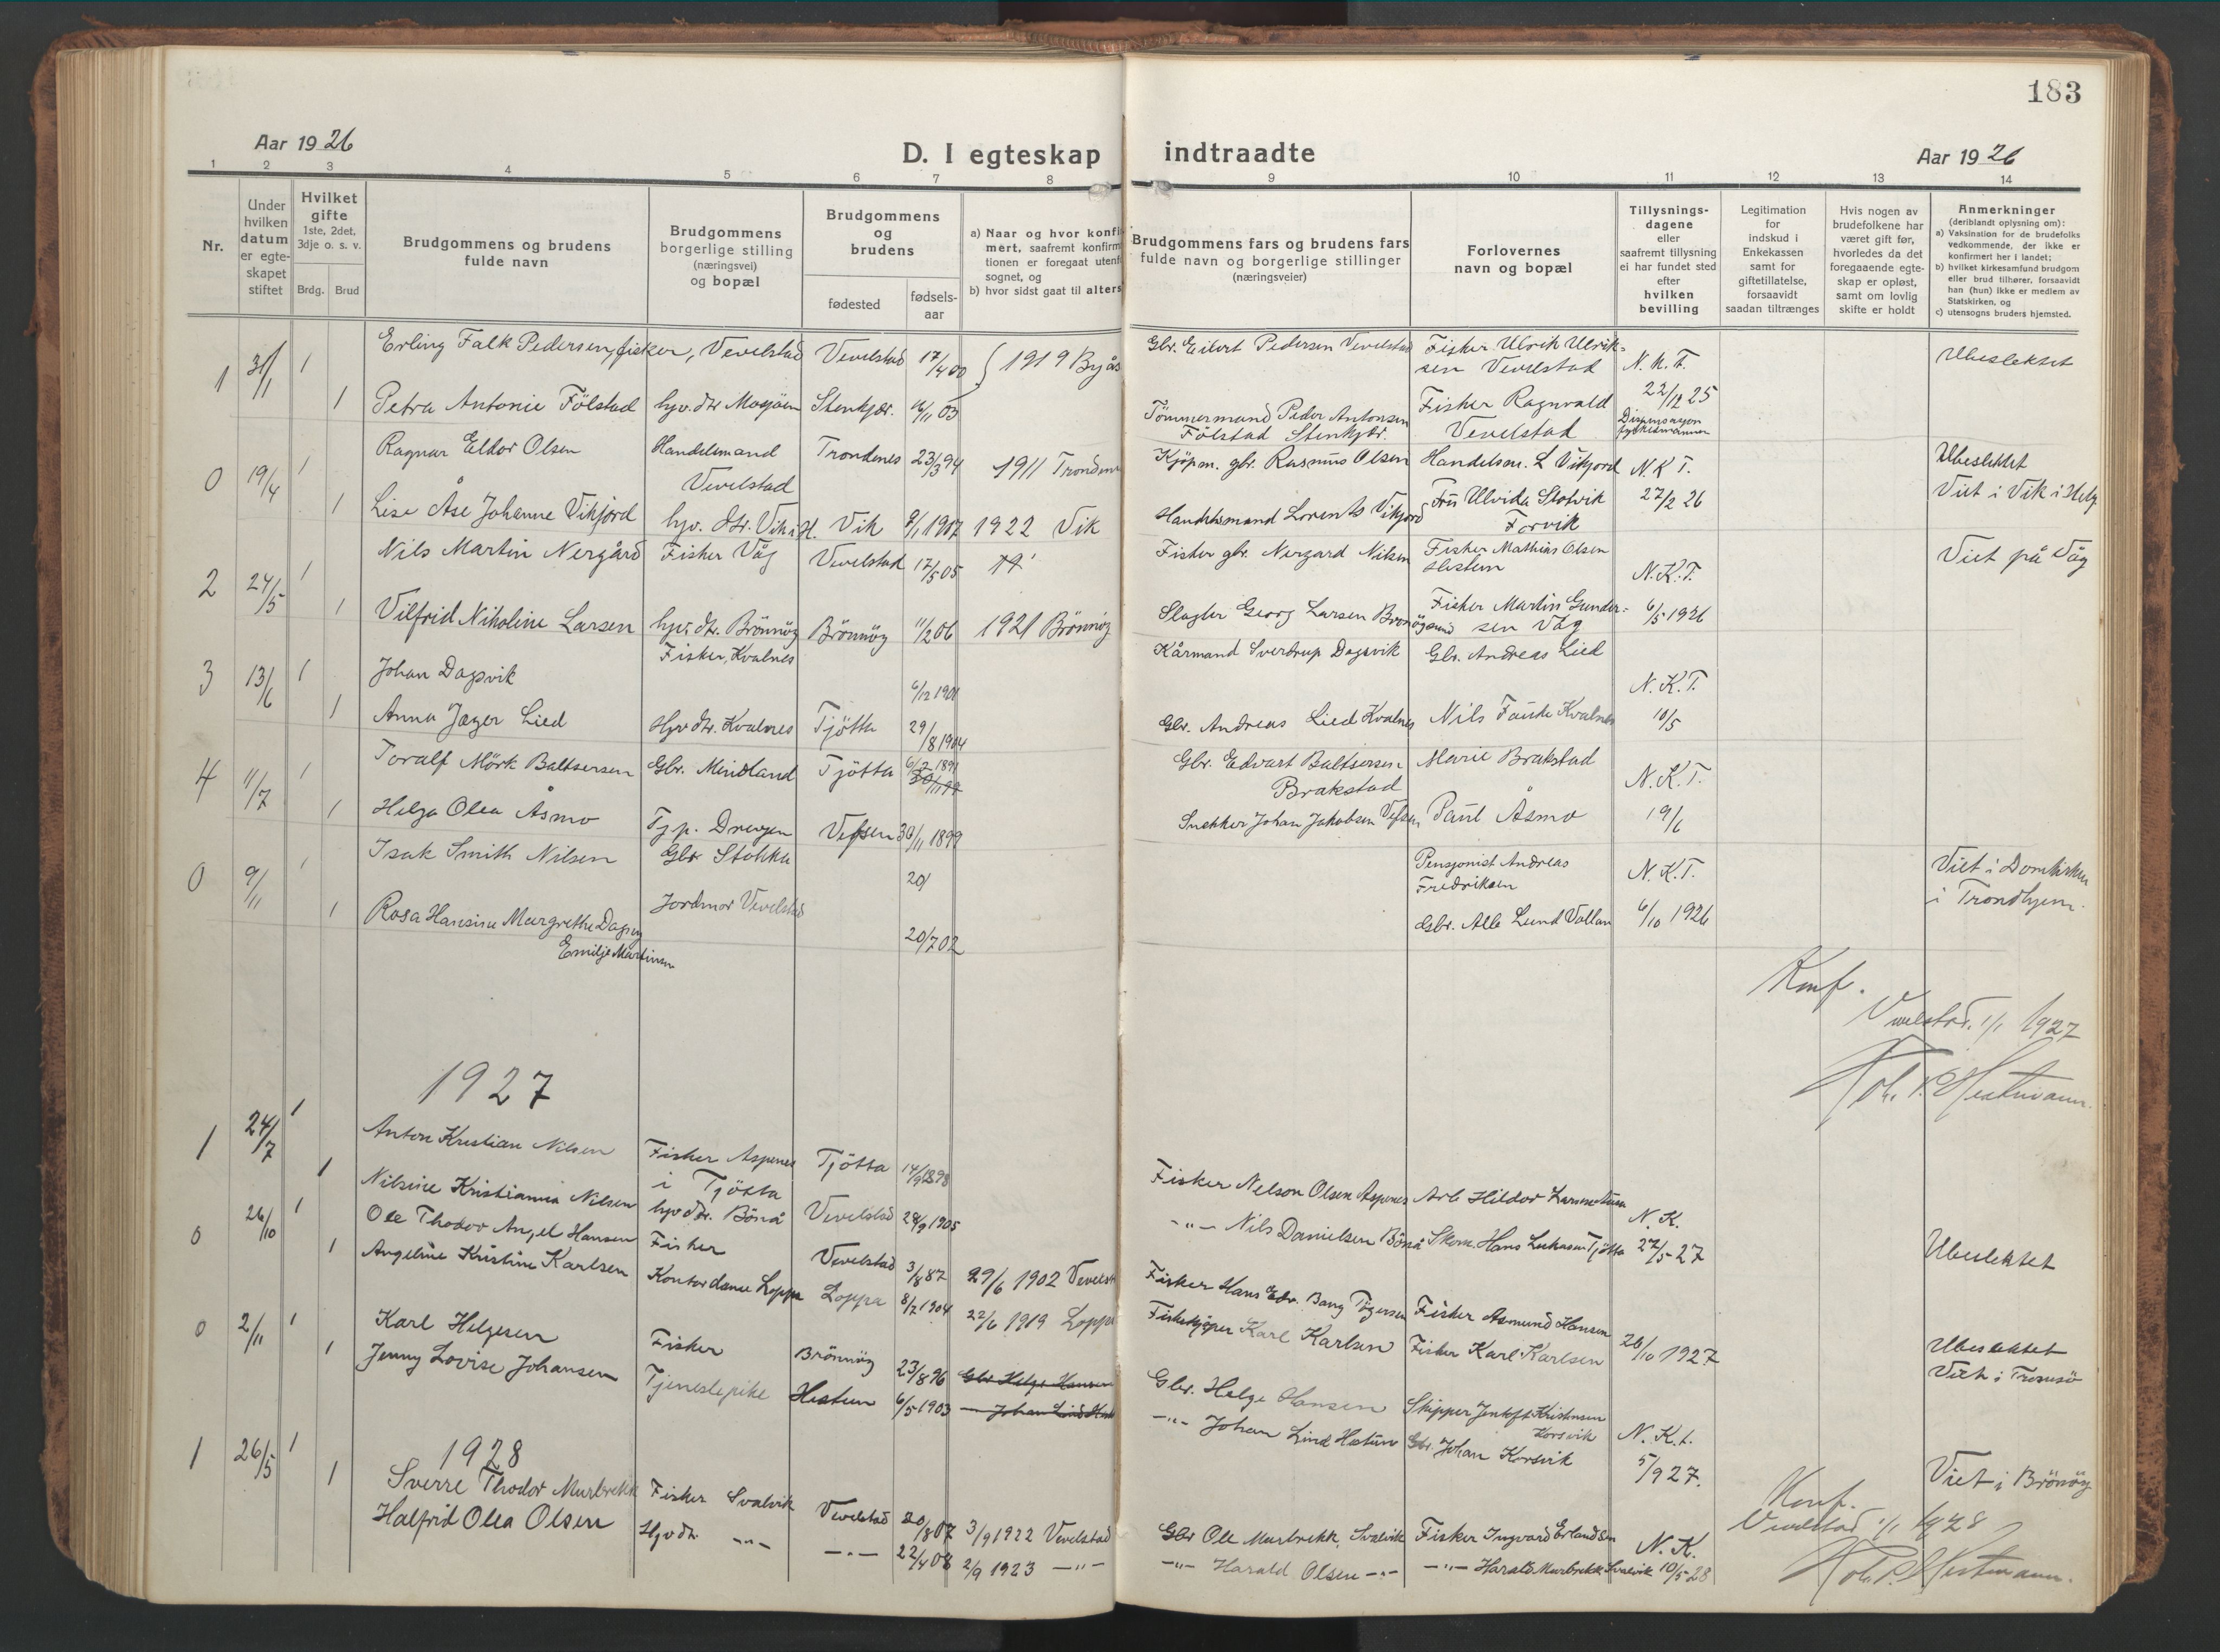 183
Aar 1926
D. I egteskap indtraadte
Aar 1926
1 2 3 4 5 6 7 8 9 10 11 12 13 14
Nr.
Under hvilken datum er egte-skapet stiftet
Hvilket gifte 1ste, 2det, 3dje o. s. v.
Brdg. Brud
Brudgommens og brudens fulde navn
Brudgommens borgerlige stilling (næringsvei) og bopæl
Brudgommens og brudens
fødested
fødsels-aar
a) Naar og hvor konfi
mert, saafremt konfirm
tionen er foregaat utenf
sognet, og
b) hvor sidst gaat til alters
Brudgommens fars og brudens fars
fulde navn og borgerlige stillinger
(næringsveier)
Forlovernes
navn og bopæl
Tillysnings-
dagene
eller
saafremt tillysning
ei har fundet sted
efter
hvilken
bevilling
Legitimation
for
indskud i
Enkekassen
samt for
giftetillatelse,
forsaavidt
saadan tiltrænges
Hvis nogen av
brudefolkene har
været gift før,
hvorledes da det
foregaaende egte-
skap er opløst,
samt om lovlig
skifte er holdt
Anmerkninger
(deriblandt oplysning om):
a) Vaksination for de brudefolks
vedkommende, der ikke er
konfirmert her i landet;
b) hvilket kirkesamfund brudgom
eller brud tilhører, forsaavidt
han (hun) ikke er medlem av
Statskirken, og
c) utensogns bruders hjemsted.
1 31/1 1 Erling Falk Pedersen, fisker, Vevelstad Vevelstad 17/4 00 { 1919 Byås Gbr. Eilert Pedersen Vevelstad Fisker Ulrik Ulrik-sen Vevelstad N. K. T. Ubeslektet
1 Petra Antonie Fölstad hjv. dtr Mosjöen Stenkjær. 16/11 03 Tömmermand Peder Antonsen Fölstad Stenkjær. Fisker Ragnvald Vevelstad 22/12 25
0 19/4 1 Ragnar Eldor Olsen Handelsmand Vevelstad Trondenes 23/3 94 1911 Kjöpm. gbr. Rasmus Olsen Handelsm. L Vikjord N. K T. Ubeslektet
1 Lise Åse Johanne Vikjord hjv. dtr. Vik i H. Vik 9/1 1907 1922 Vik Handelsmand Lorents Vikjord Fru Ulvida Stokvik Forvik 27/2 26 Viet i Vik i Helg
2 24/5 1 Nils Martin Nergård Fisker Våg Vevelstad 17/5 05 Fisker gbr. Nergard Nilsen Fisker Mathias Olsen Hestun N. K. T. Viet på Våg
1 Vilfrid Nikoline Larsen hjv. dtr. Brönnöy Brönnöy 11/2 06 1921 Brönnöy Slagter Georg Larsen Brönnöysund Fisker Martin Gunder-sen Våg 6/5 1926
3 13/6 1 Johan Dagsvik Fisker, Kvalnes 6/12 1901 Kårmand Sverdrup Dagsvik Gbr. Andreas Lied N. K. T.
1 Anna Jæger Lied Hjv dtr. Kvalnes Tjötta 29/8 1904 Gbr. Andreas Lied Kvalnes Nils Fauske Kvalnes 10/5
4 11/7 1 Toralf Mörk Baltsersen Gbr. Mindland Tjötta 6/2 1891 Gbr. Edvart Baltsersen Brakstad Marie Brakstad N. K. T.
1 Helga Olea Åsmo Tjp. Drevjen Vefsen 30/11 1899 Snekker Johan Jakobsen Vefsen Paul Åsmo 19/6
0 9/11 1 Isak Smith Nilsen Gbr Stokka 20/ Pensjonist Andreas Fredriksen N. K. T. Viet i Domkirken i Trondhjem.
1 Rosa Hansine Margrethe Dagny Emilje Martinsen Jordmor Vevelstad 20/7 02 Gbr. Alle Lund Vollan 6/10 1926
Konf.
Vevelstad, 1/1 1927
Joh. P. Hestmann.
1927
1 24/7 1 Anton Kristian Nilsen Fisker Aspenes i Tjötta Tjötta 14/9 1898 Fisker Nelson Olsen Aspenes Arb Hildor N. K.
1 Nilsine Kristianna Nilsen hjv dtr. Bönå Vevelstad 28/9 1905 -"- Nils Danielsen Bönå Skom. Hans Lukassen Tjötta 27/5 27
0 26/10 1 Ole Thodor Angel Hansen Fisker Vevelstad 3/8 87 29/6 1902 Vevelst Fisker Hans Edv. Bang Tögersen Fisker Asmund Hansen Ubeslektet
1 Angeline Kristine Karlsen Kontordame Loppa Loppa 8/7 1904 22/6 1919 Loppa Fiskekjöper Karl Karlsen Fisker Karl Karlsen 20/10 1927
0 2/11 1 Karl Helgesen Fisker Brönnöy 23/8 96 Gbr Helge Hansen Gbr. Helge Hansen Skipper Jentoft Kristensen Korsvik N. K. t. Ubeslektet Viet i Tromsö
1 Jenny Lovise Johansen Tjenestepike Hestun 6/5 1903 — Johan Lind -"- Johan Lind Hestun Gbr. Johan Korsvik 5/9 27.
1928
1 26/5 1 Sverre Thodor Murbrekk Fisker Svalvik Vevelstad 20/8 07 3/9 1922 Vevelstad Gbr Ole Murbrekk, Svalvik Fisker Ingvard Erlandsen N. K. Viet i Brönöy
1 Halfrid Olea Olsen Hjv dtr -"- -"- 22/4 08 2/9 1923 -"- -"- Harald Olsen -"- -"- Harald Murbrekk Svalvik 10/5 28
Konf.
Vevelstad 1/1 1928
Joh. P. Hestmann.